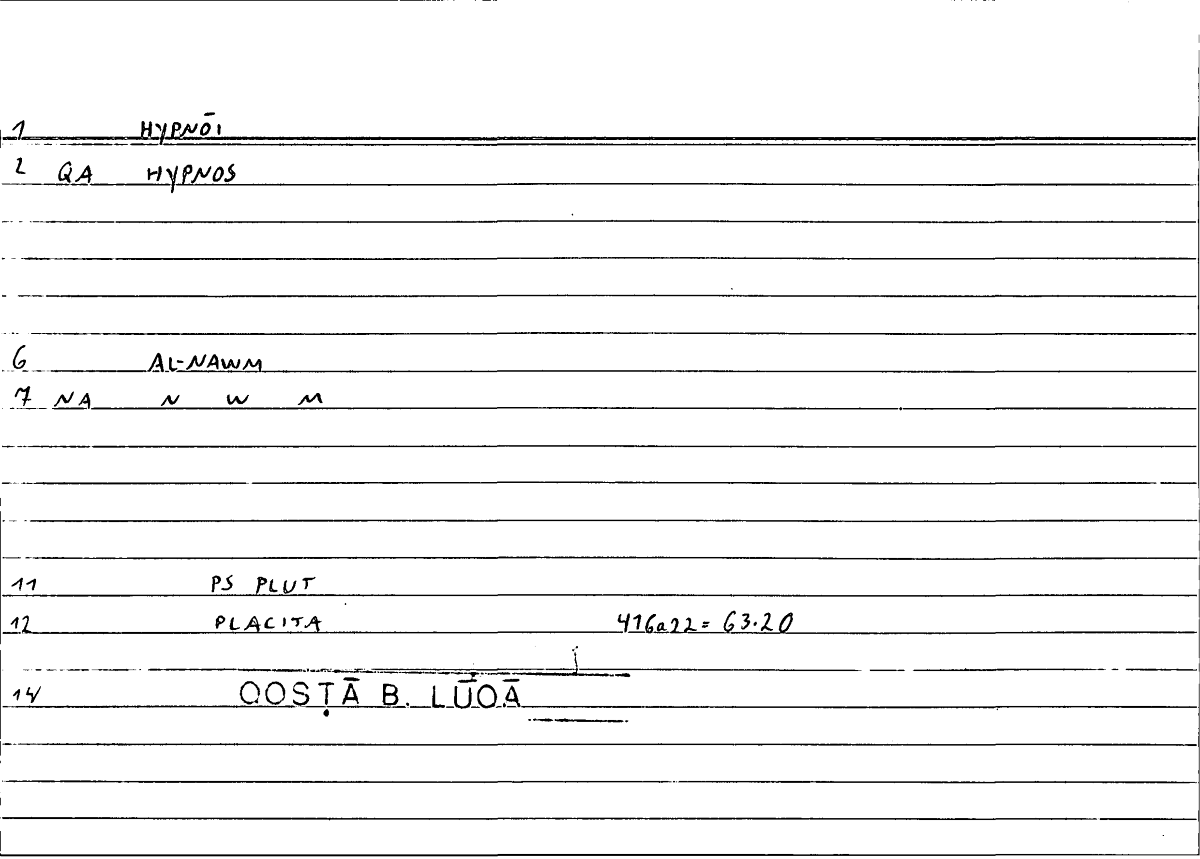 1 HYPNŌI
2 QA HYPNOS
6 AL-NAWM
7 NA N W M
11 PS PLUT
12 PLACITA 416a22= 63.20
14 QOSṬĀ B. LŪQĀ